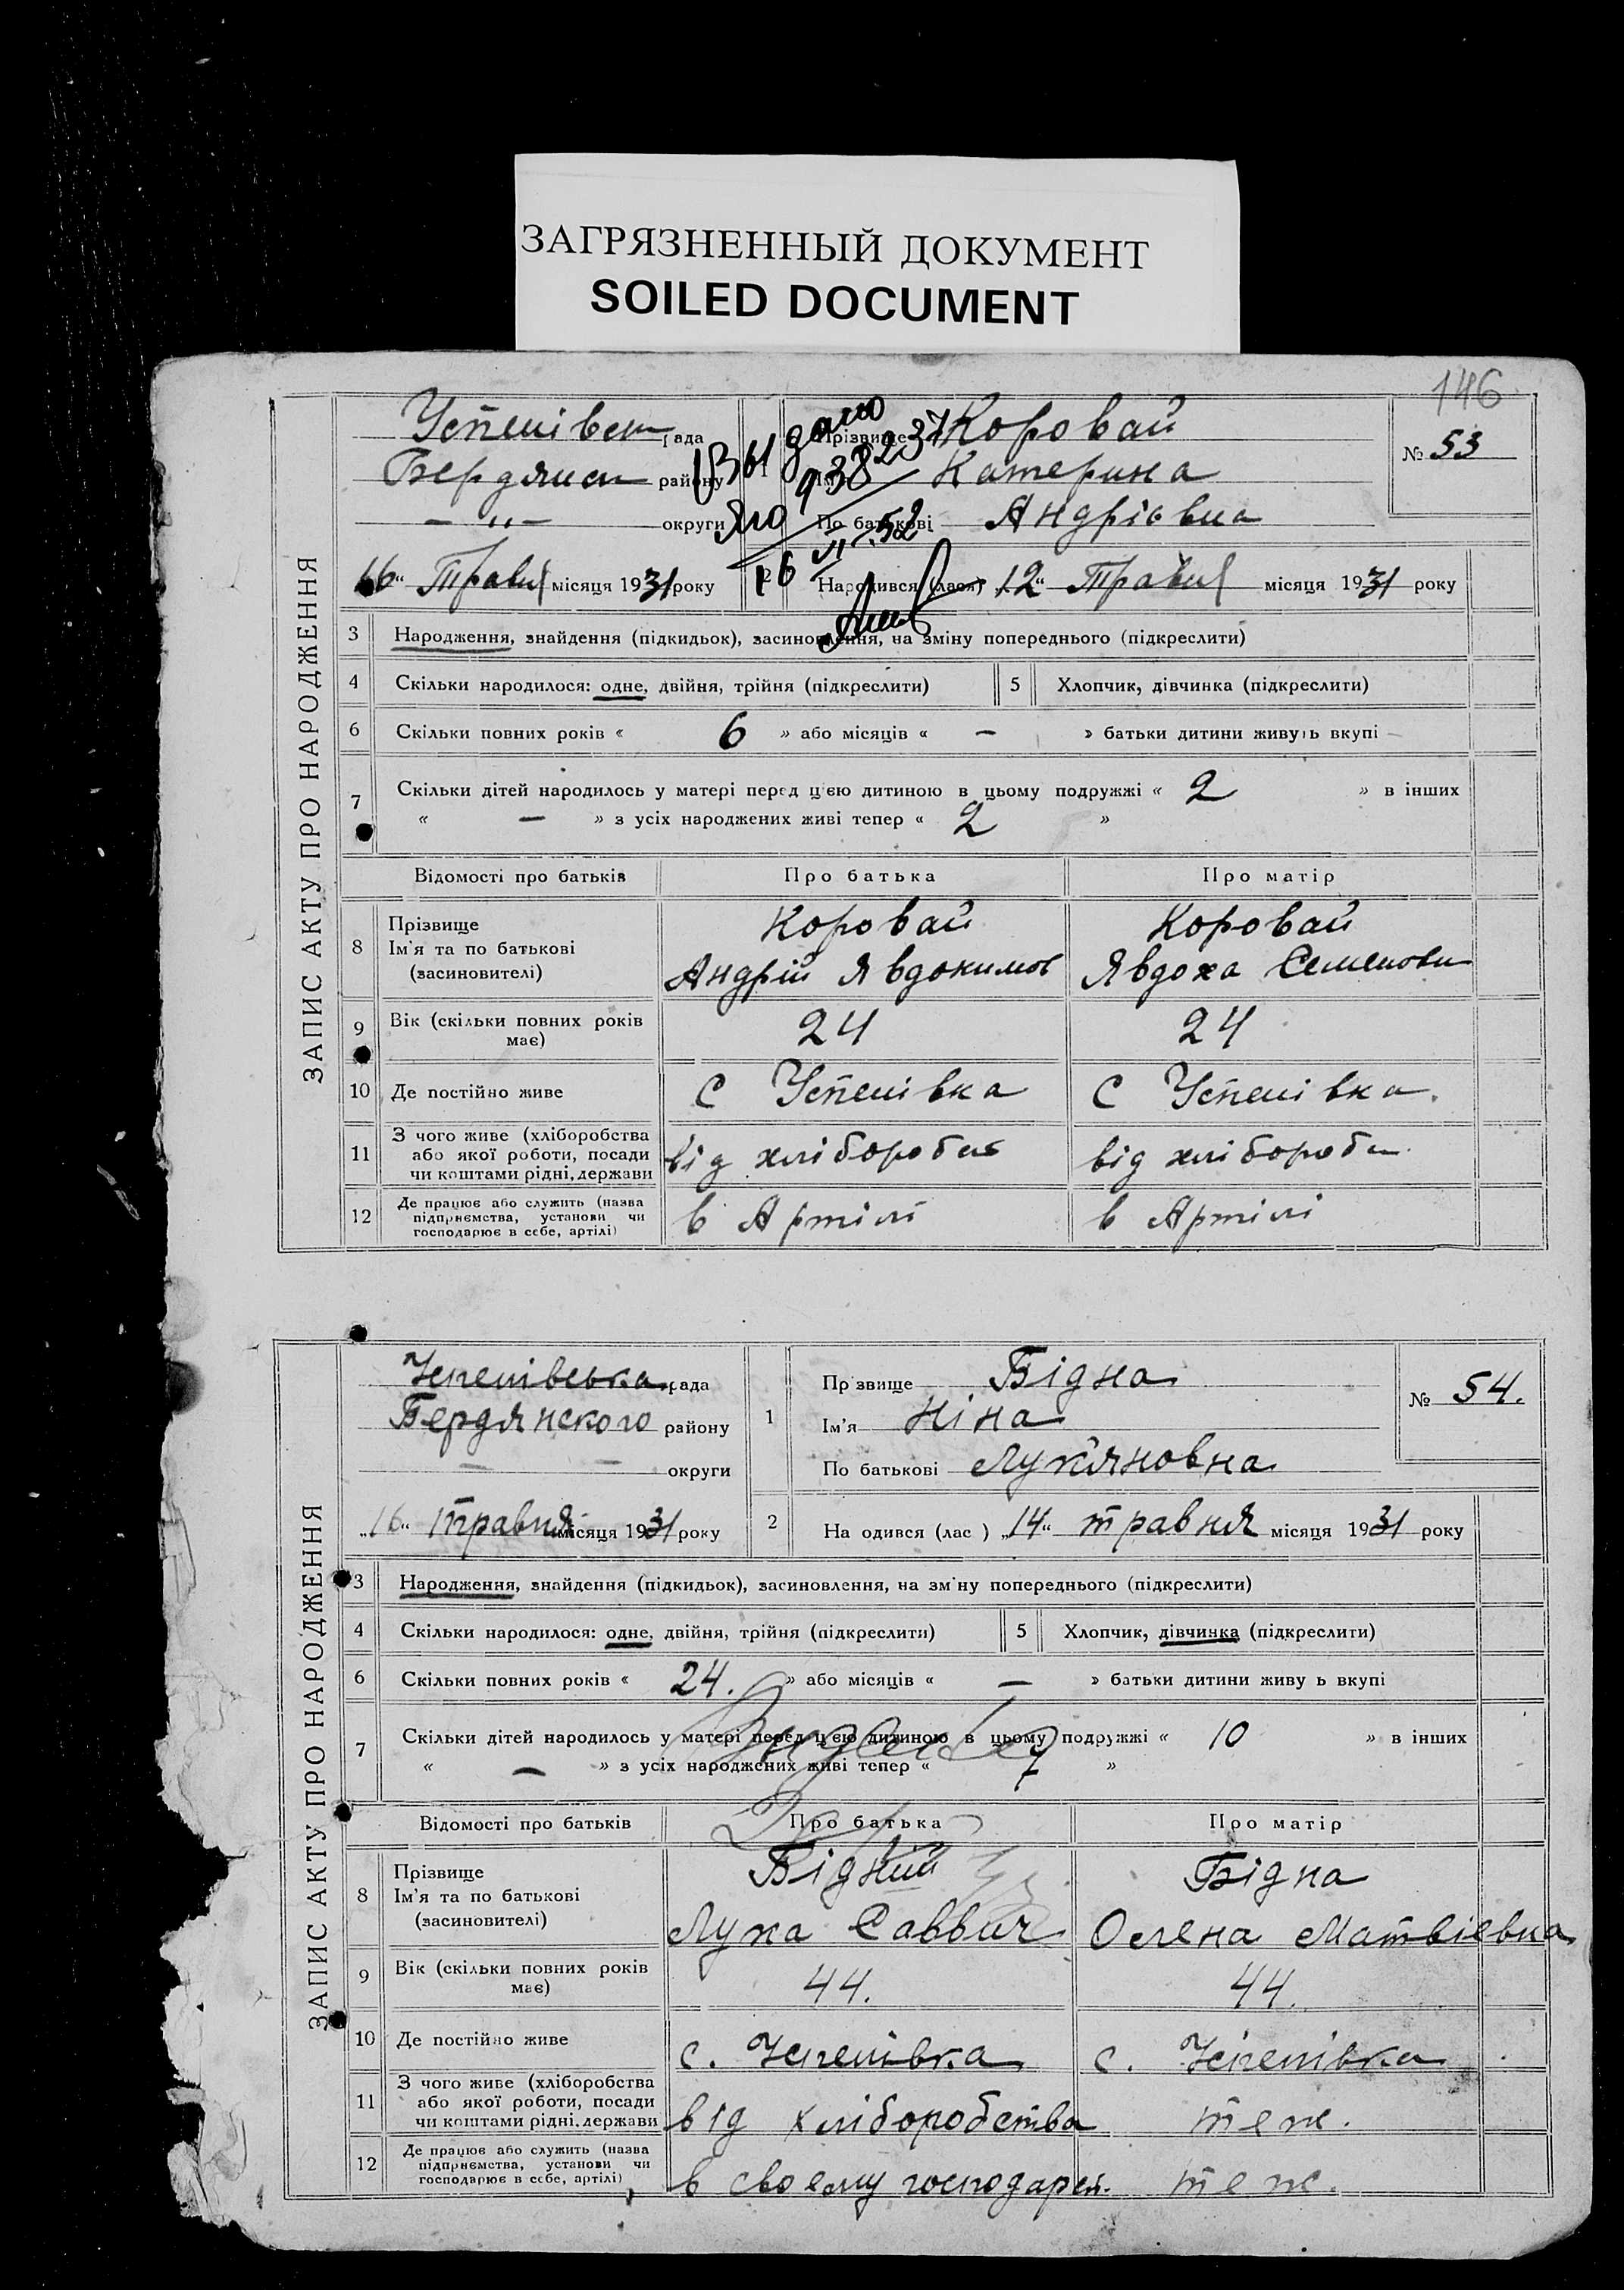 ЗАГРЯЗНЕННЫЙ ДОКУМЕНТ
SOILED DOCUMENT
146
ЗАПИС АКТУ ПРО НАРОДЖЕННЯ
Успенівськ рада
Бердянськ району
— „ — округи
16 Травня місяця 1931 року
1 Прізвище Коровай
Ім'я Катерина
По батькові Андріівна
№ 53
2 Народився (лася) 12 Травня місяця 1931 року
Выдано
16
52
3 Народження, знайдення (підкидьок), засиновлення, на зміну попереднього (підкреслити)
4 Скільки народилося: одне, двійня, трійня (підкреслити) 5 Хлопчик, дівчинка (підкреслити)
6 Скільки повних років « 6 » або місяців « — » батьки дитини живуть вкупі
7 Скільки дітей народилось у матері перед цією дитиною в цьому подружжі « 2 » в інших
« — » з усіх народжених живі тепер « 2 »
Відомості про батьків Про батька Про матір
8 Прізвище
Ім'я та по батькові
(засиновителі)
Коровай
Андрій Явдокимов
Коровай
Явдоха Семеновн
9 Вік (скільки повних років має) 24 24
10 Де постійно живе С Успенівка С Успенівка.
11 З чого живе (хліборобства
або якої роботи, посади
чи коштами рідні, держави
від хлібороб від хлібороб
12 Де працює або служить (назва
підприємства, установи чи
господарює в себе, артілі)
в Артілі в Артілі
ЗАПИС АКТУ ПРО НАРОДЖЕННЯ
Успенівська рада
Бердянского району
— — округи
„16“ травня місяця 1931 року
1 Прізвище Бідна
Ім'я Ніна
По батькові Лук'яновна
№ 54.
2 Народився (лас ) „14“ травня місяця 1931 року
3 Народження, знайдення (підкидьок), засиновлення, на зміну попереднього (підкреслити)
4 Скільки народилося: одне, двійня, трійня (підкреслити) 5 Хлопчик, дівчинка (підкреслити)
6 Скільки повних років « 24. » або місяців « — » батьки дитини живу ь вкупі
7 Скільки дітей народилось у матері перед цією дитиною в цьому подружжі « 10 » в інших
« — » з усіх народжених живі тепер « 7 »
Відомості про батьків Про батька Про матір
8 Прізвище
Ім'я та по батькові
(засиновителі)
Бідний
Лука Саввич
Бідна
Олена Матвіевна
9 Вік (скільки повних років має) 44. 44.
10 Де постійно живе с. Успенівка с. Успенівка
11 З чого живе (хліборобства
або якої роботи, посади
чи коштами рідні, держави
від хліборобства теж.
12 Де працює або служить (назва
підприємства, установи чи
господарює в себе, артілі)
в своему господарсв. теж.